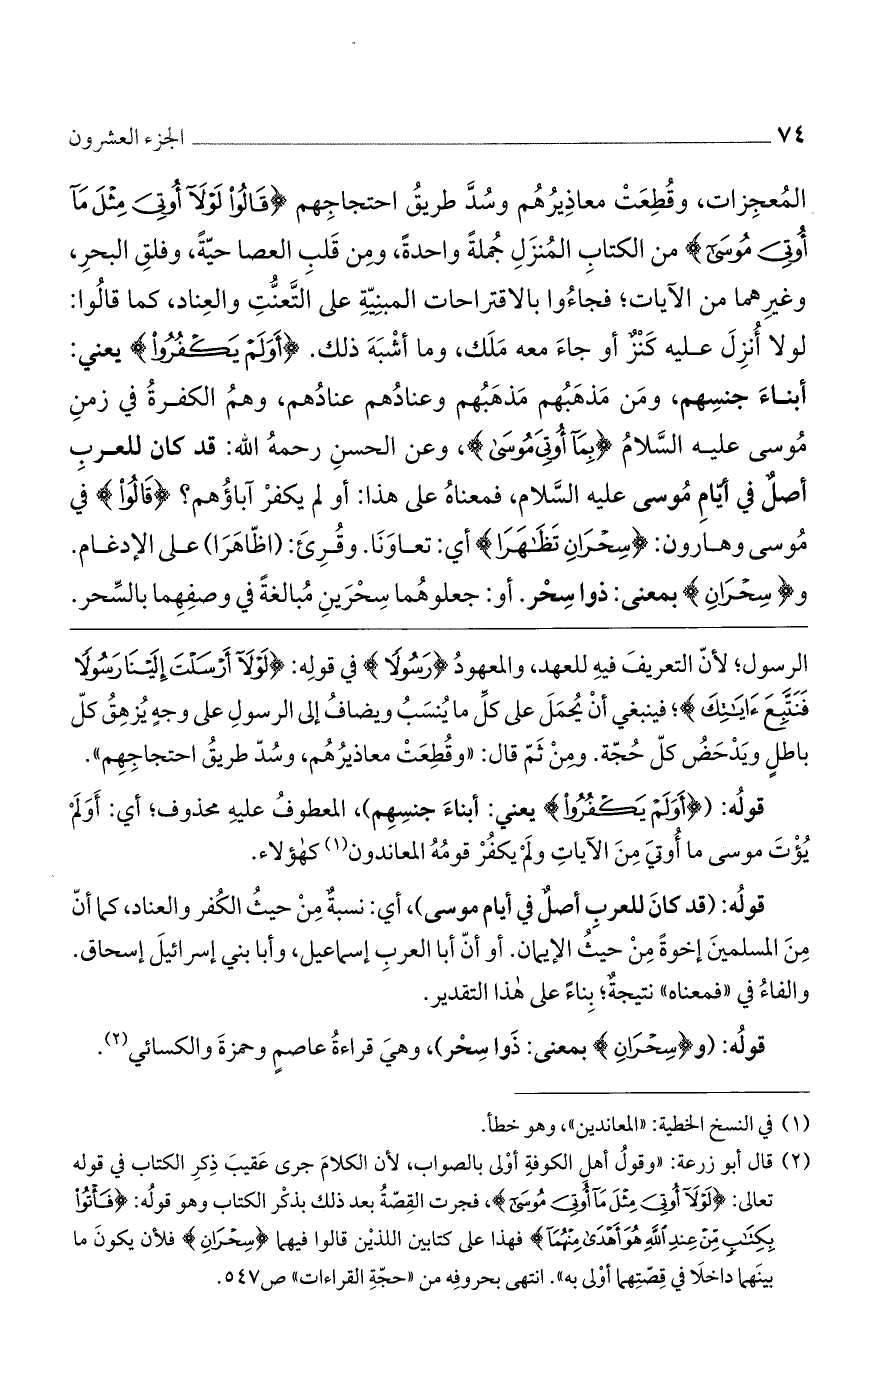 ٧٤ الجزء العشرون
المُعجِزات، وقُطِعَتْ معاذِيرُهُم وسُدَّ طريقُ احتجاجِهم ﴿قَالُوا۟ لَوْلَآ أُوتِىَ مِثْلَ مَآ
أُوتِىَ مُوسَىٰٓ﴾ من الكتابِ المُنزَلِ جُملةً واحدةً، ومِن قَلبِ العصا حيّةً، وفلقِ البحرِ،
وغيرِهما من الآيات؛ فجاءُوا بالاقتراحات المبنيّةِ على التَّعنُّتِ والعِناد، كما قالُوا:
لولا أُنزِلَ عليه كَنْزٌ أو جاءَ معه مَلَك، وما أشْبَهَ ذلك. ﴿أَوَلَمْ يَكْفُرُوا۟﴾ يعني:
أبناءَ جنسِهم، ومَن مَذهَبُهم مَذهَبُهم وعنادُهم عنادُهم، وهمُ الكفرةُ في زمنِ
مُوسى عليه السَّلامُ ﴿بِمَآ أُوتِىَ مُوسَىٰ﴾، وعن الحسنِ رحمهُ الله: قد كان للعربِ
أصلٌ في أيّامِ مُوسى عليه السَّلام، فمعناهُ على هذا: أو لم يكفرْ آباؤُهم؟ ﴿قَالُوا۟﴾ في
مُوسى وهارون: ﴿سِحْرَانِ تَظَٰهَرَا﴾ أي: تعاوَنَا. وقُرِئَ: (اظّاهَرَا) على الإدغام.
و﴿سِحْرَانِ﴾ بمعنى: ذوا سِحْر. أو: جعلوهُما سِحْرَينِ مُبالغةً في وصفِهِما بالسِّحر.
الرسول؛ لأنّ التعريفَ فيهِ للعهد، والمعهودُ ﴿رَسُولًا﴾ في قولِه: ﴿لَوْلَآ أَرْسَلْتَ إِلَيْنَا رَسُولًا
فَنَتَّبِعَ ءَايَٰتِكَ﴾؛ فينبغي أنْ يُحمَلَ على كلِّ ما يُنسَبُ ويضافُ إلى الرسولِ على وجهٍ يُزهِقُ كلّ
باطلٍ ويَدْحَضُ كلّ حُجّة. ومِنْ ثَمّ قال: «وقُطِعَتْ معاذيرُهُم، وسُدّ طريقُ احتجاجِهِم».
قولُه: (﴿أَوَلَمْ يَكْفُرُوا۟﴾ يعني: أبناءَ جنسِهِم)، المعطوفُ عليهِ محذوف؛ أي: أَوَلَمْ
يُؤْتَ موسى ما أُوتيَ مِنَ الآياتِ ولَمْ يكفُرْ قومُهُ المعاندون(١) كهٰؤلاء.
قولُه: (قد كانَ للعربِ أصلٌ في أيام موسى)، أي: نسبةٌ مِنْ حيثُ الكُفر والعناد، كما أنّ
مِنَ المسلمينَ إخوةً مِنْ حيثُ الإيمان. أو أنّ أبا العربِ إسماعيل، وأبا بني إسرائيلَ إسحاق.
والفاءُ في «فمعناه» نتيجةٌ؛ بِناءً على هٰذا التقدير.
قولُه: (و﴿سِحْرَانِ﴾ بمعنى: ذَوا سِحْر)، وهيَ قراءةُ عاصمٍ وحمزةَ والكسائي(٢).
(١) في النسخ الخطية: «المعاندين»، وهو خطأ.
(٢) قال أبو زرعة: «وقولُ أهلِ الكوفةِ أوْلى بالصواب، لأن الكلامَ جرى عَقيبَ ذِكرِ الكتاب في قوله
تعالى: ﴿لَوْلَآ أُوتِىَ مِثْلَ مَآ أُوتِىَ مُوسَىٰٓ﴾، فجرت القِصّةُ بعد ذلك بذكْر الكتاب وهو قولُه: ﴿فَأْتُوا۟
بِكِتَٰبٍ مِّنْ عِندِ ٱللَّهِ هُوَ أَهْدَىٰ مِنْهُمَآ﴾ فهذا على كتابين اللذيْن قالوا فيهما ﴿سِحْرَانِ﴾ فلأن يكونَ ما
بينَهما داخلًا في قِصّتِهما أوْلى به». انتهى بحروفِه من «حجّةِ القراءات» ص٥٤٧.